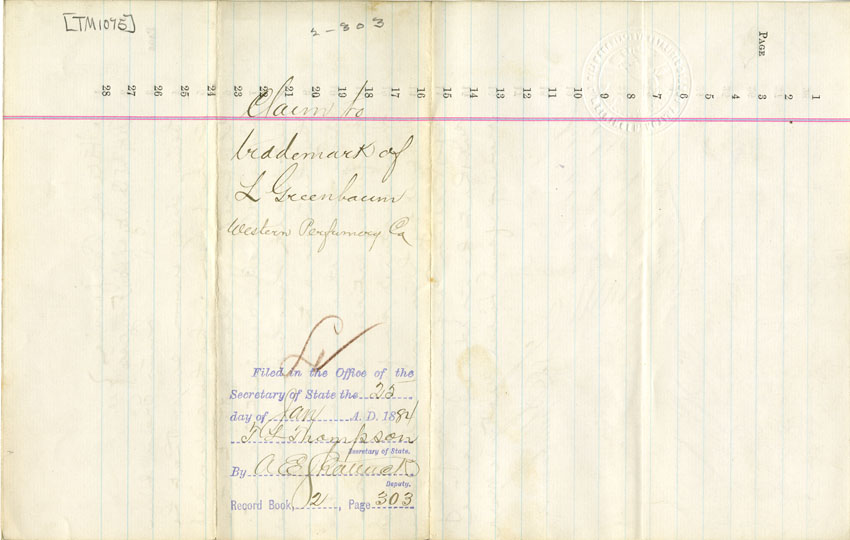 [TM1075]
2-303
PAGE
28 27 26 25 24 23 22 21 20 19 18 17 16 15 14 13 12 11 10 9 8 7 6 5 4 3 2 1
Claim to
trademark of
L Greenbaum
Western Perfumery Co
Filed in the Office of the
Secretary of State the 25
day of Jan A. D. 1884
T L Thompson
Secretary of State.
By A E
Deputy.
Record Book, 2, Page 303